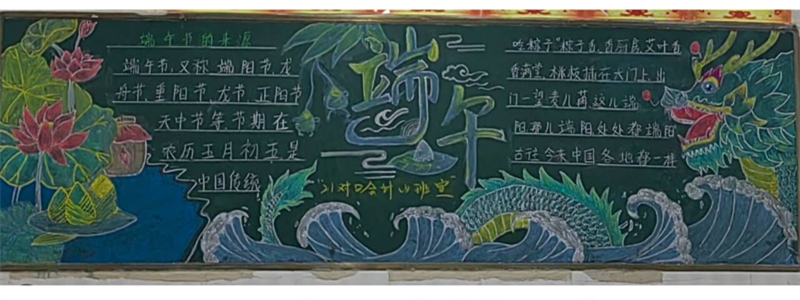 端午节的来源
端午节，又称端阳节，龙
舟节，重阳节，龙节，正阳节
天中节等节期在
农历五月初五是
中国传统
端午
"21对口会计山班宣"
吃粽子"粽子香，香厨房艾叶香
香满堂，桃枝插在大门上，出
门一望麦儿黄这儿端
阳那儿端阳处处都端阳
古往今来中国各地都一样